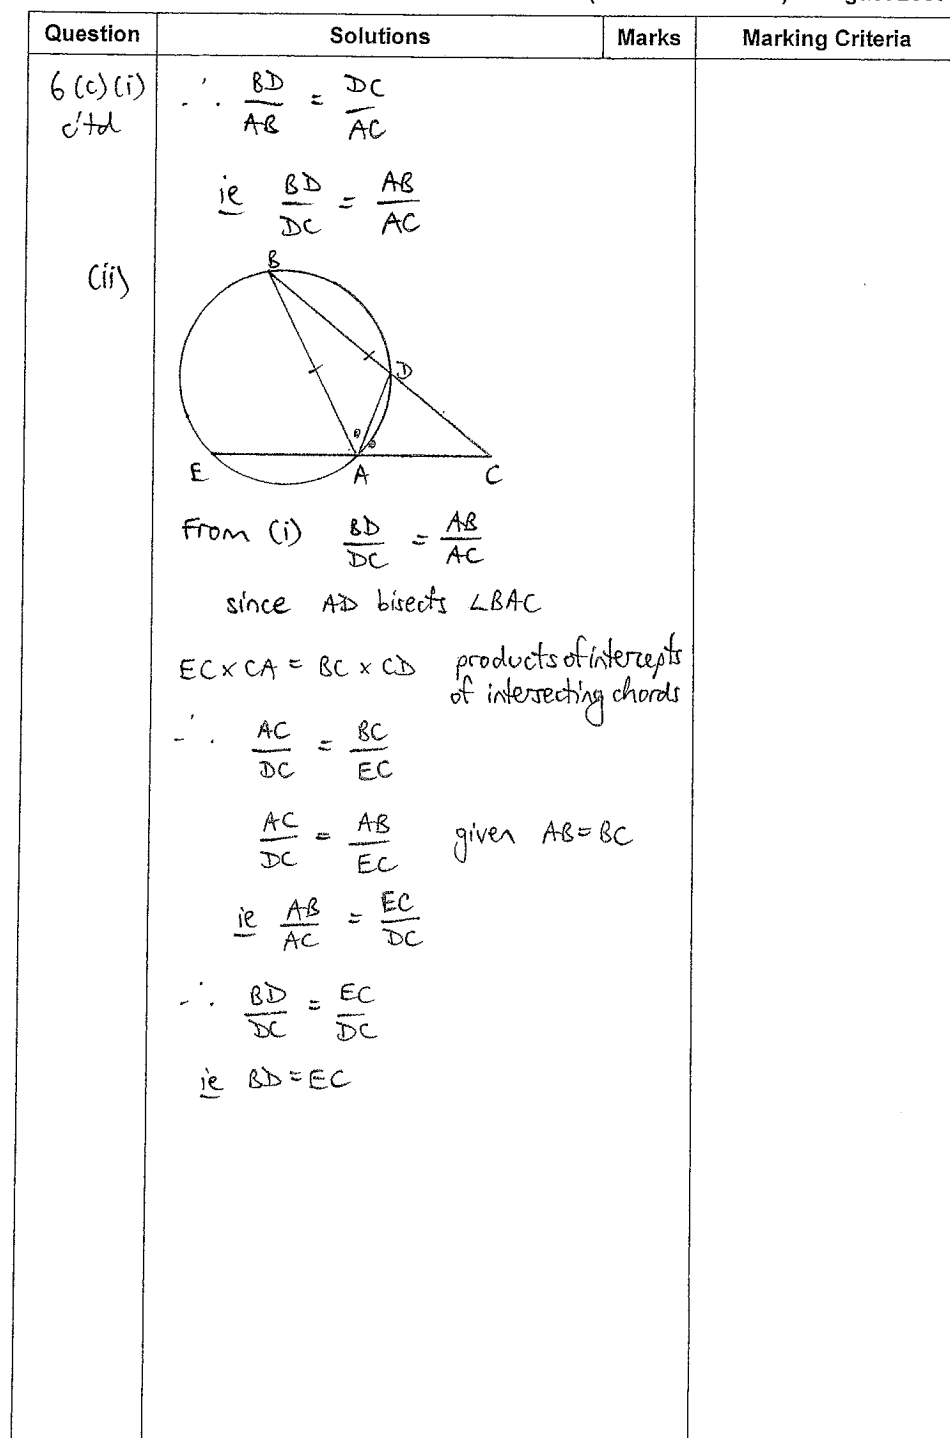 Question Solutions Marks Marking Criteria
6 (c) (i) ∴ BD/AB = DC/AC
c'td
ie BD/DC = AB/AC
(ii)
B
D
E A C
From (i) BD/DC = AB/AC
since AD bisects ∠BAC
EC × CA = BC × CD products of intercepts
of intersecting chords
∴ AC/DC = BC/EC
AC/DC = AB/EC given AB = BC
ie AB/AC = EC/DC
∴ BD/DC = EC/DC
ie BD = EC